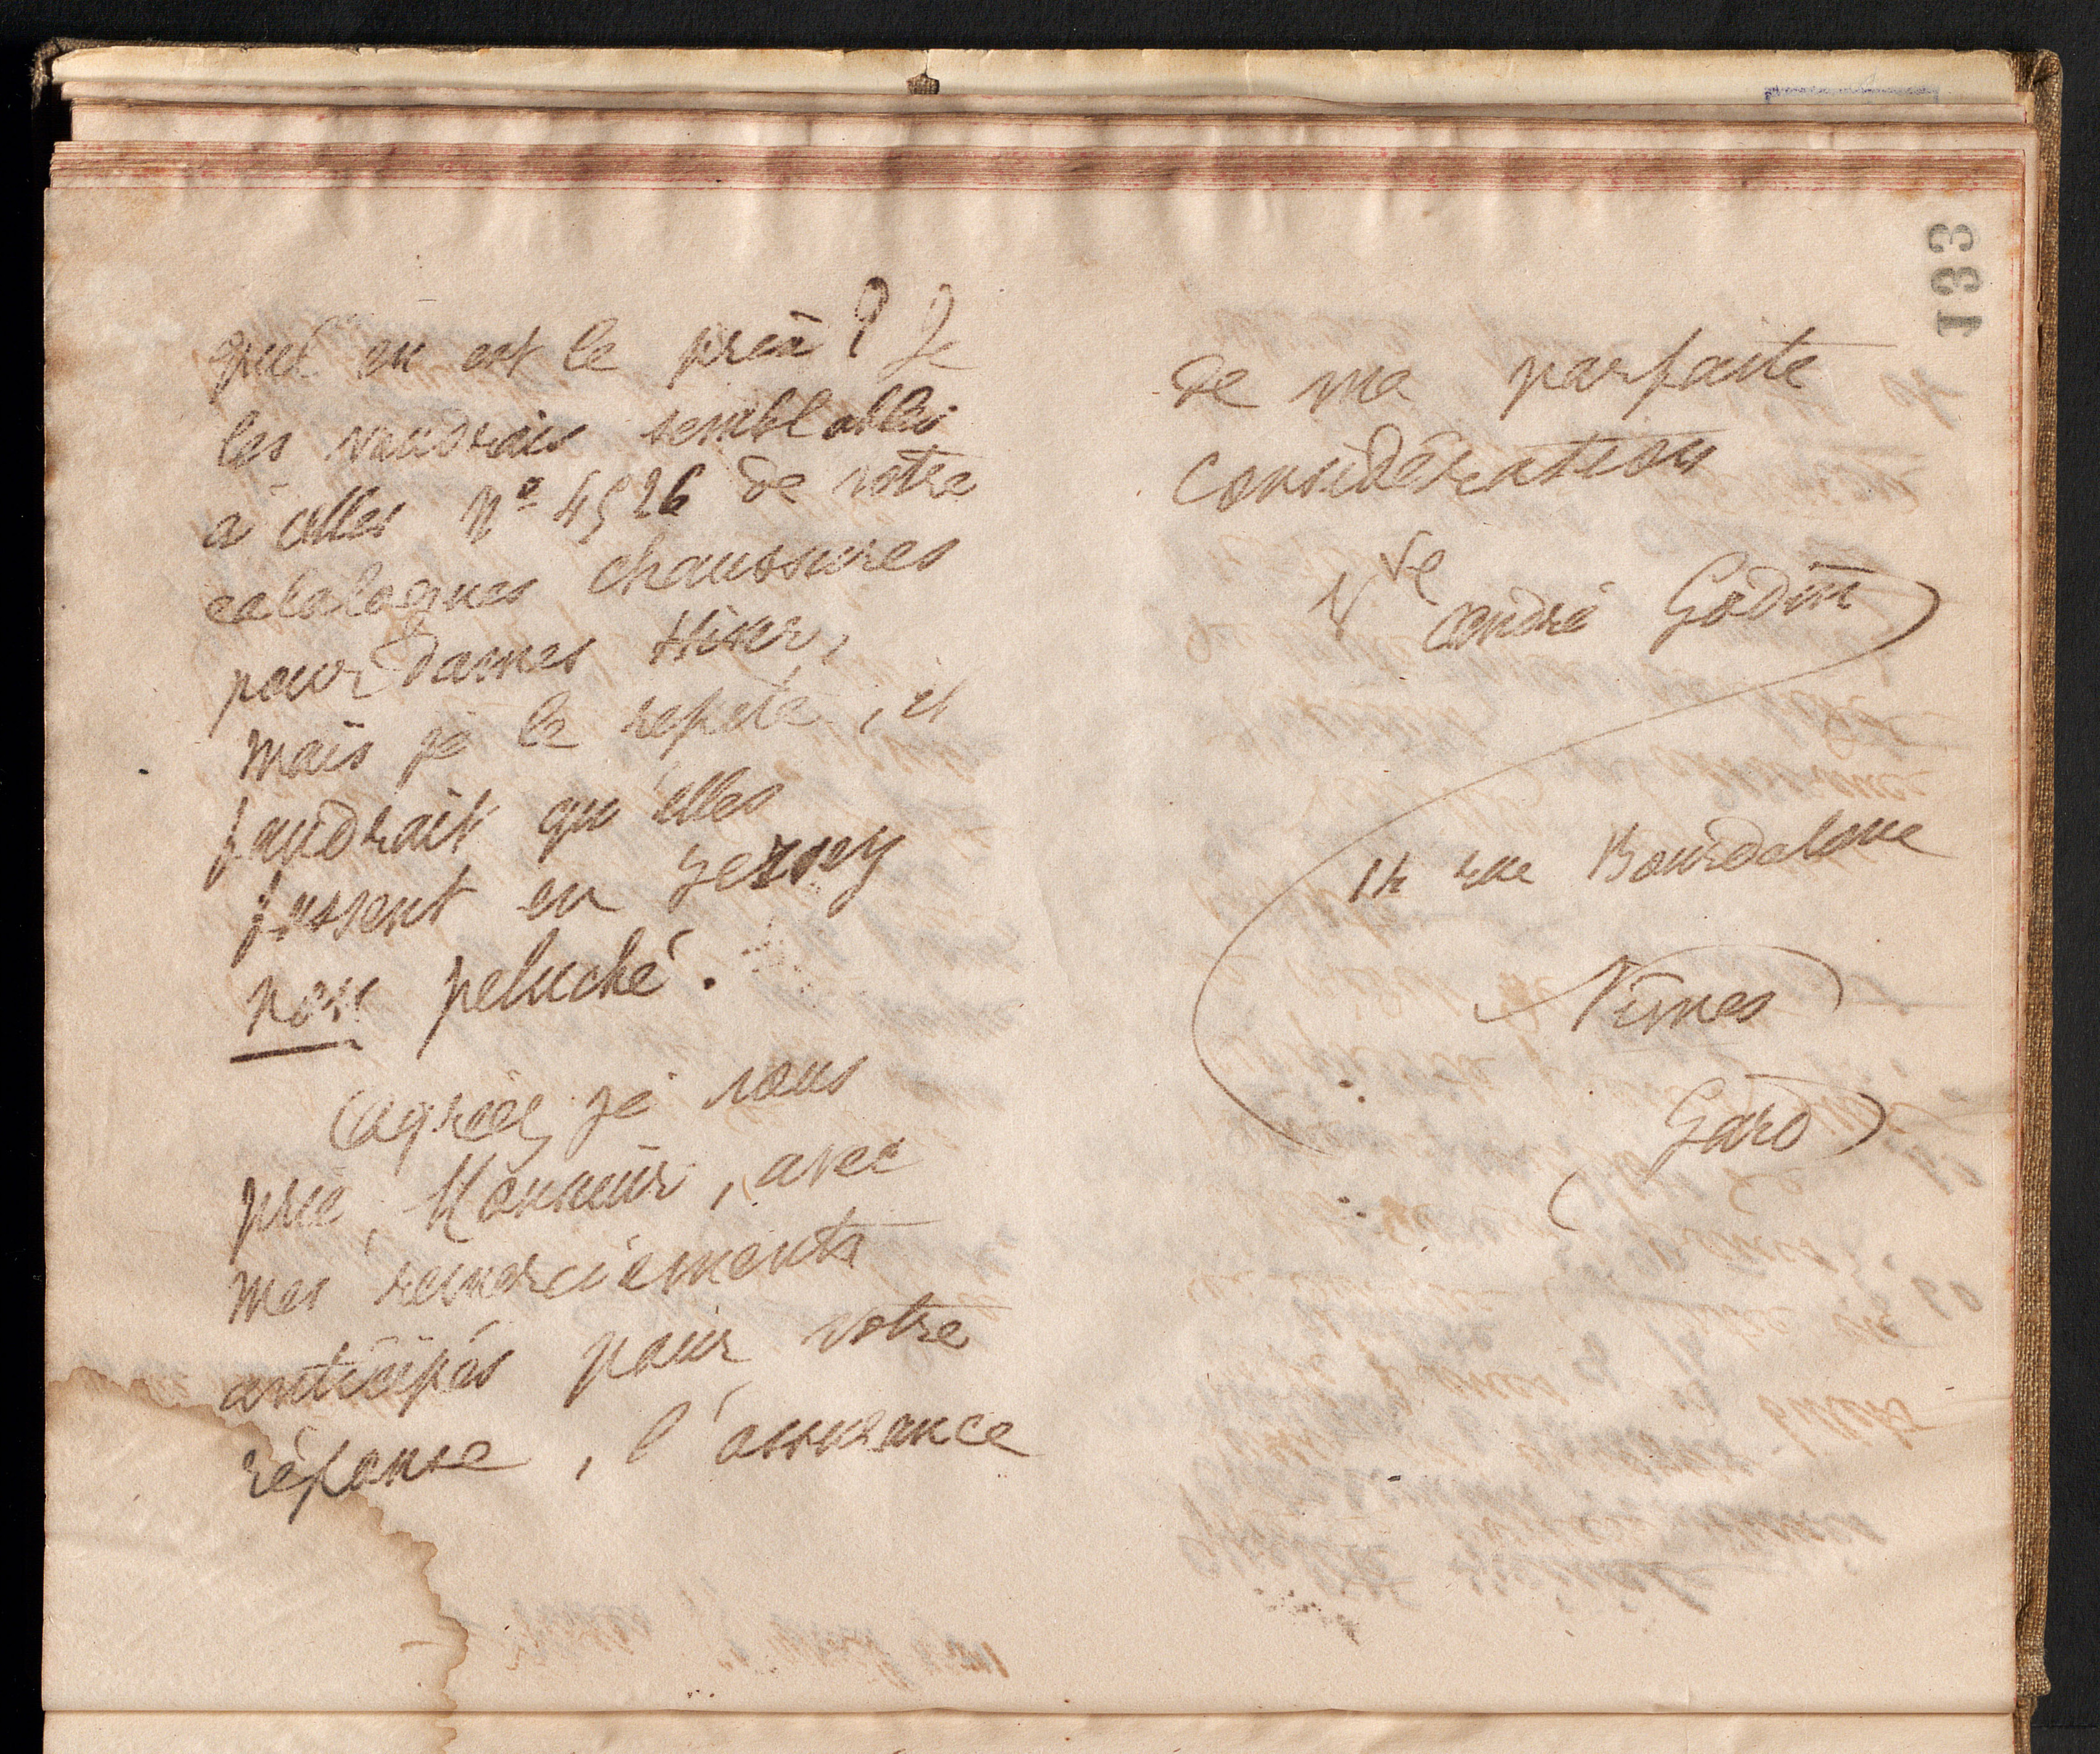 quel en est le prix ? Je
les voudrais semblables
à celles N° 4526 de votre
catalogues chaussures
pour dames Hiver,
mais je le repète, il
faudrait qu'elles
fussent en jersey
non peluché.
Agréez, je vous
prie, Monsieur, avec
mes remerciements
anticipés pour votre
réponse, l'assurance
133
de ma parfaite
considération
Vve André Godin
14 rue Bourdaloue
Nimes
Gard